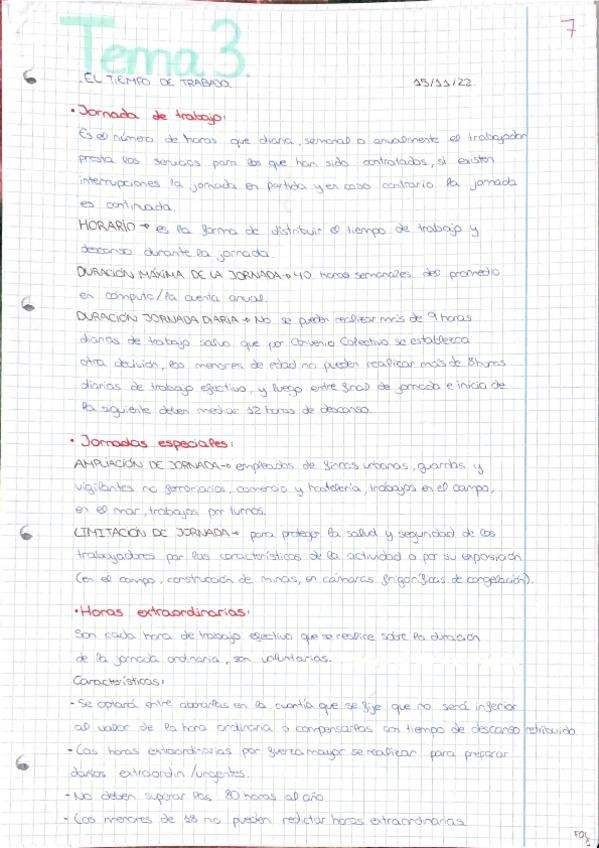 Tema 3.
7
.EL TIEMPO DE TRABAJO
15/11/22
• Jornada de trabajo:
Es el número de horas que diaria, semanal o anualmente el trabajador
presta los servicios para los que han sido contratados, si existen
interrupciones la jornada en partida y en caso contrario la jornada
es continuada.
HORARIO → es la forma de distribuir el tiempo de trabajo y
descanso durante la jornada.
DURACIÓN MÁXIMA DE LA JORNADA → 40 horas semanales des promedio
en cómputo/la cuenta anual.
DURACIÓN JORNADA DIARIA → No se pueden realizar más de 9 horas
diarias de trabajo salvo que por Convenio Colectivo se establezca
otra decisión, los menores de edad no pueden realizar más de 8 horas
diarias de trabajo efectivo, y luego entre final de jornada e inicio de
la siguiente deben mediar 12 horas de descanso.
• Jornadas especiales:
AMPLIACIÓN DE JORNADA → empleados de fincas urbanas, guardas y
vigilantes no ferroviarios, comercio y hostelería, trabajos en el campo,
en el mar, trabajos por turnos.
LIMITACIÓN DE JORNADA → para proteger la salud y seguridad de los
trabajadores por las características de la actividad o por su exposición
(en el campo, construcción de minas, en cámaras frigoríficas de congelación).
• Horas extraordinarias:
Son cada hora de trabajo efectivo que se realice sobre la duración
de la jornada ordinaria, son voluntarias.
Características:
- Se optará entre abonarlas en la cuantía que se fije que no será inferior
al valor de la hora ordinaria o compensarlas con tiempo de descanso retribuido
- Las horas extraordinarias por fuerza mayor se realizar para preparar
daños extraordin/urgentes.
- No deben superar las 80 horas al año
- Los menores de 18 no pueden realizar horas extraordinarias
FOL